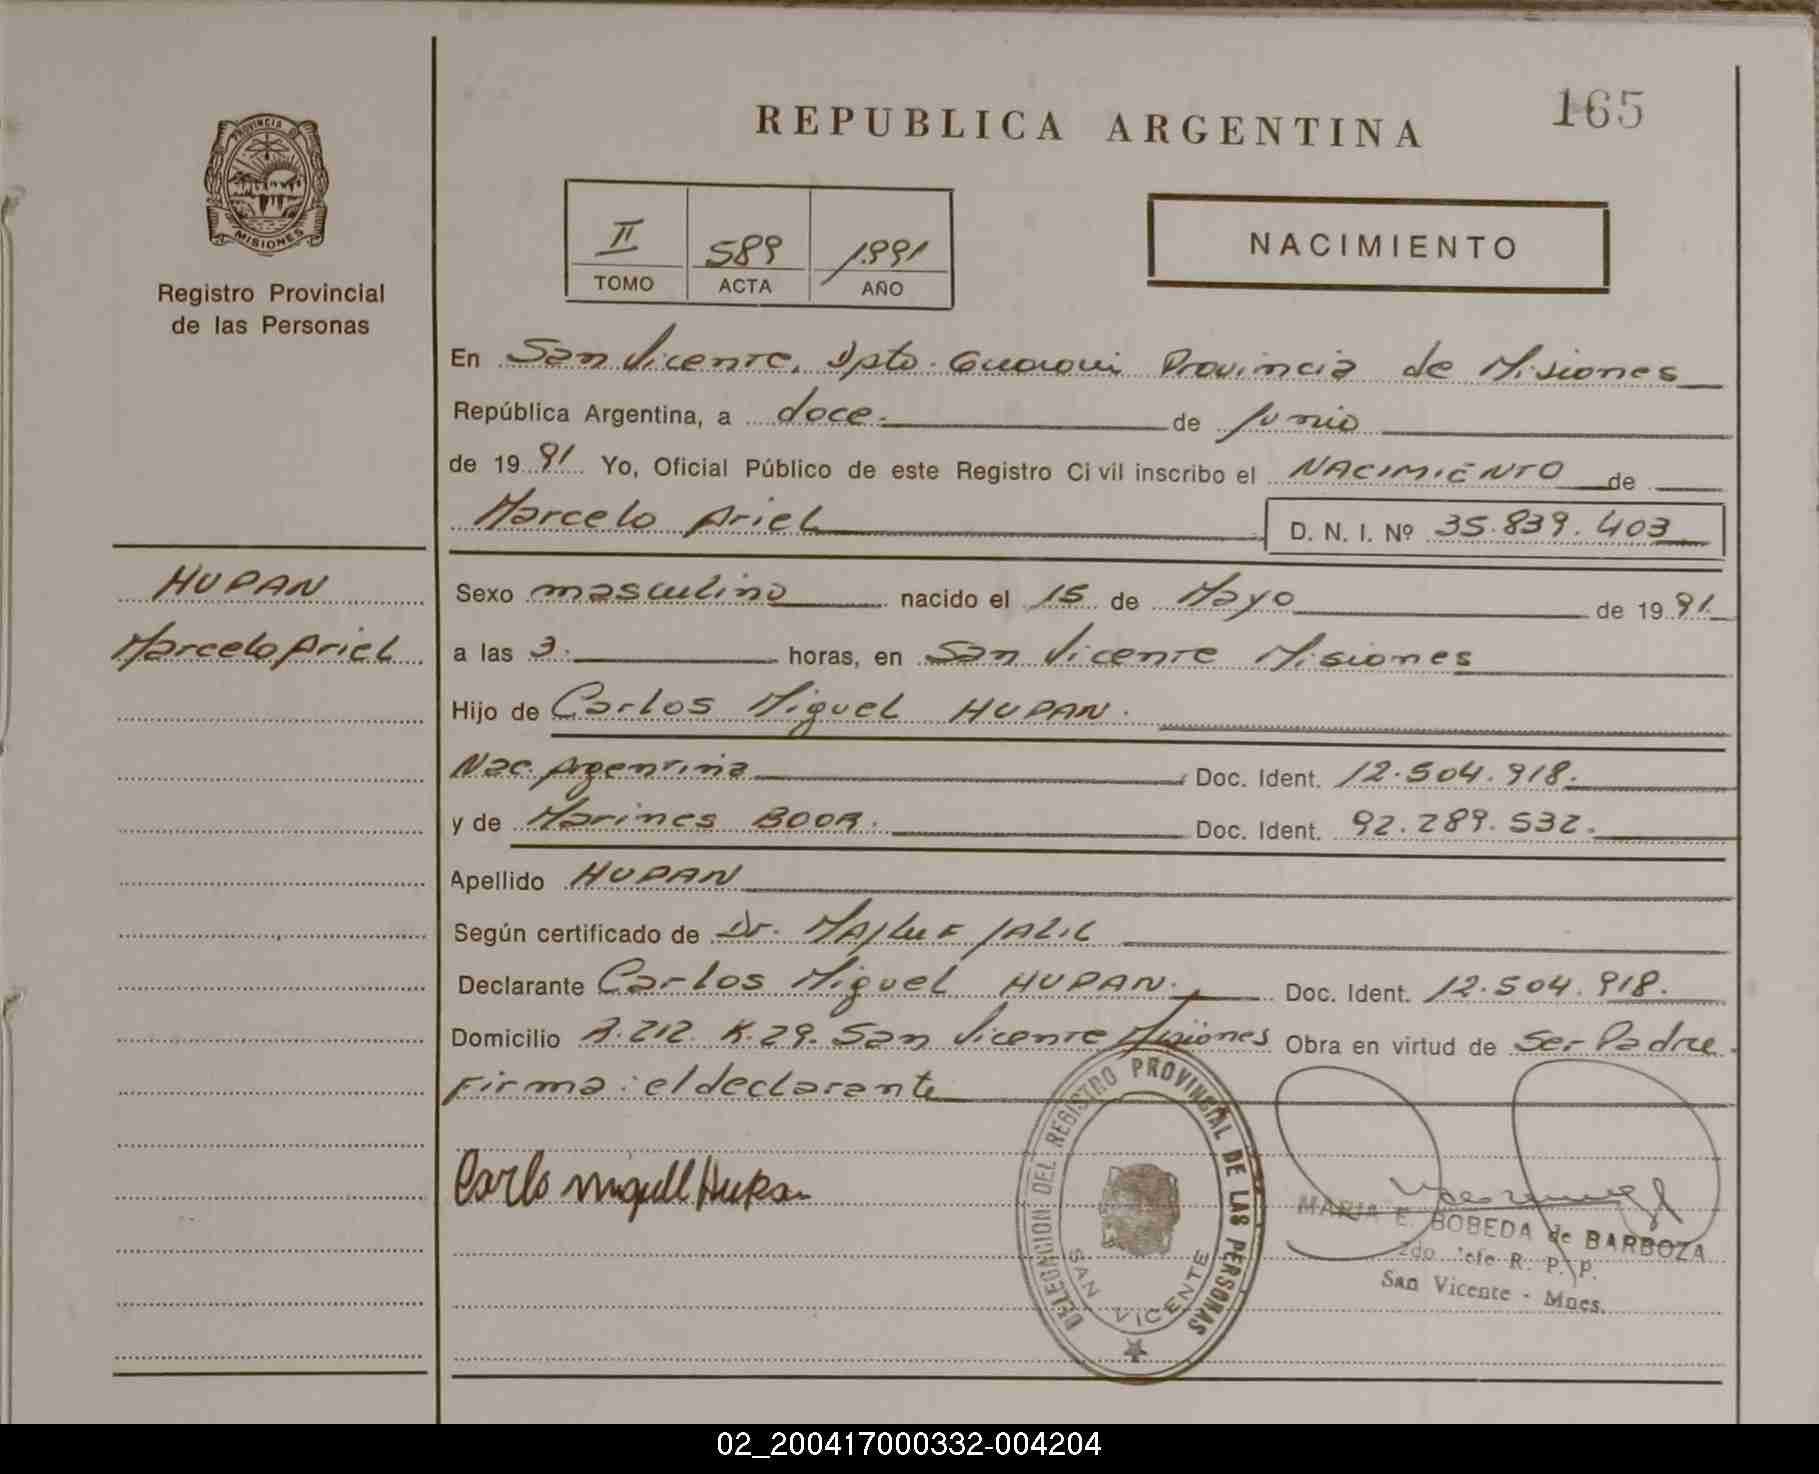 165
REPUBLICA ARGENTINA
PROVINCIA DE
MISIONES
Registro Provincial
de las Personas
II 589 1991
TOMO ACTA AÑO
NACIMIENTO
En San Vicente, Dpto. Guarani Provincia de Misiones
República Argentina, a doce. de Junio
de 1991 Yo, Oficial Público de este Registro Civil inscribo el NACIMIENTO de
Marcelo Ariel D. N. I. Nº 35.839.403
HUPAN
Marcelo Ariel
Sexo masculino nacido el 15 de Mayo de 1991
a las 3. horas, en San Vicente Misiones
Hijo de Carlos Miguel HUPAN.
Nac. Argentina Doc. Ident. 12.504.918.
y de Marines BOOR. Doc. Ident. 92.289.532.
Apellido HUPAN
Según certificado de Dr. MAJLUF JALIL
Declarante Carlos Miguel HUPAN. Doc. Ident. 12.504.918.
Domicilio A.212. K.29. San Vicente Misiones Obra en virtud de Ser Padre.
Firma: el declarante
Carlo Miguell Hupan
DELEGACION DEL REGISTRO PROVINCIAL DE LAS PERSONAS
SAN VICENTE
MARIA E. BOBEDA de BARBOZA
2do. Jefe R. P. P.
San Vicente - Mnes.
02_200417000332-004204